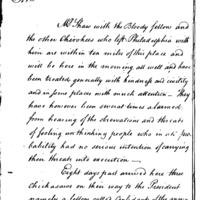 Mr Shaw with the Bloody fellow and
the other Cherokees who left Philadelphia with
him are within ten miles of this place and
will be here in the morning all well and have
been treated generally with kindness and civility
and in some places with much attention. They
have however been several times alarmed
from hearing of the observations and threats
of foolish unthinking people who in
bability has no serious intention of carrying
their threats into execution
Eight days past arrived here three
chickasaws on their way to the President
namely a fellow